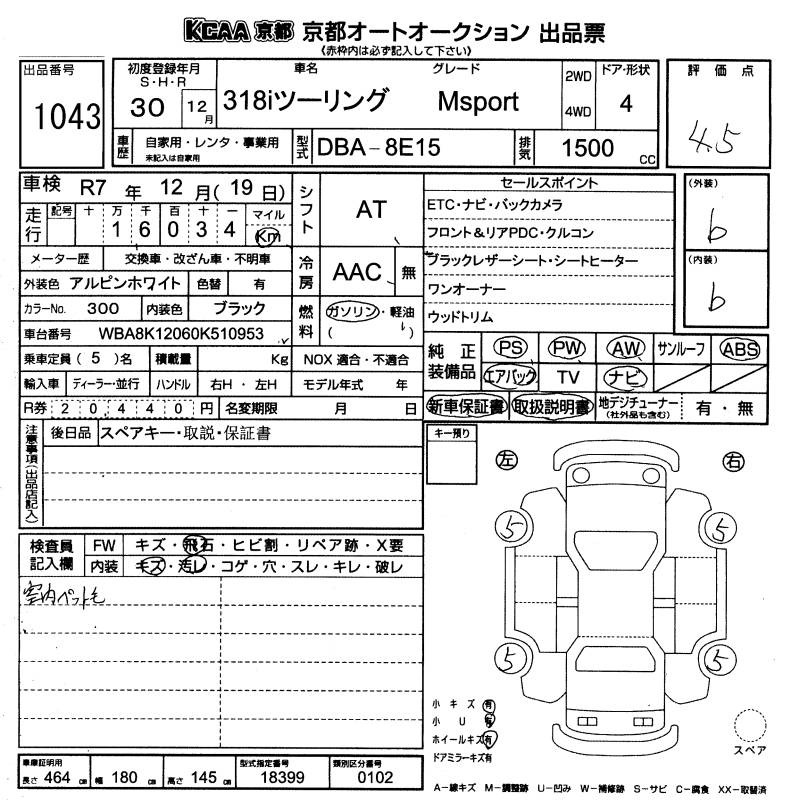 KCAA 京都 京都オートオークション 出品票
(赤枠内は必ず記入して下さい)
出品番号
1043
初度登録年月
S・H・R
30 12月
車名 グレード
318iツーリング Msport
2WD
4WD
ドア・形状
4
評価点
4.5
車歴 自家用・レンタ・事業用
未記入は自家用
型式 DBA-8E15
排気 1500 cc
車検 R7 年 12 月(19 日)
走行 記号 十 万 千 百 十 一 マイル
1 6 0 3 4 Km
メーター歴 交換車・改ざん車・不明車
外装色 アルピンホワイト 色替 有
カラーNo. 300 内装色 ブラック
車台番号 WBA8K12060K510953
シフト AT
冷房 AAC 無
燃料 ガソリン・軽油
( )
セールスポイント
ETC・ナビ・バックカメラ
フロント&リアPDC・クルコン
ブラックレザーシート・シートヒーター
ワンオーナー
ウッドトリム
(外装)
b
(内装)
b
乗車定員(5)名 積載量 Kg NOX 適合・不適合
輸入車 ディーラー・並行 ハンドル 右H・左H モデル年式 年
R券 20440円 名変期限 月 日
純正装備品 PS PW AW サンルーフ ABS
エアバック TV ナビ
新車保証書 取扱説明書 地デジチューナー(社外品も含む) 有・無
注意事項(出品店記入)
後日品 スペアキー・取説・保証書
キー預り
左 右
5 5
5 5
検査員記入欄 FW キズ・飛石・ヒビ割・リペア跡・X要
内装 キズ・汚レ・コゲ・穴・スレ・キレ・破レ
室内ペット毛
小キズ 有
小U 有
ホイールキズ 有
ドアミラーキズ 有
スペア
車庫証明用
長さ 464 cm 幅 180 cm 高さ 145 cm
型式指定番号
18399
類別区分番号
0102
A-線キズ M-調整跡 U-凹み W-補修跡 S-サビ C-腐食 XX-取替済